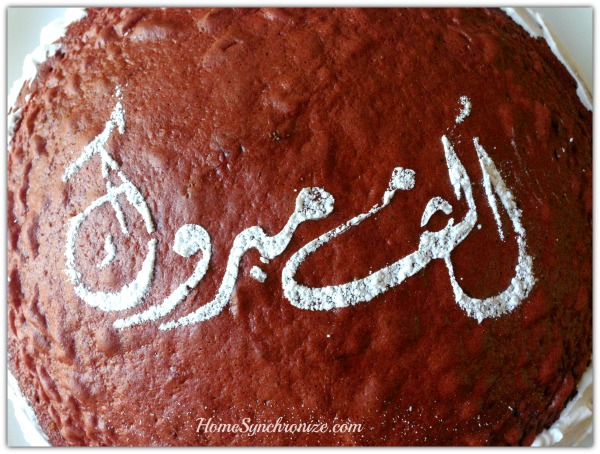 ألف مبروك
HomeSynchronize.com